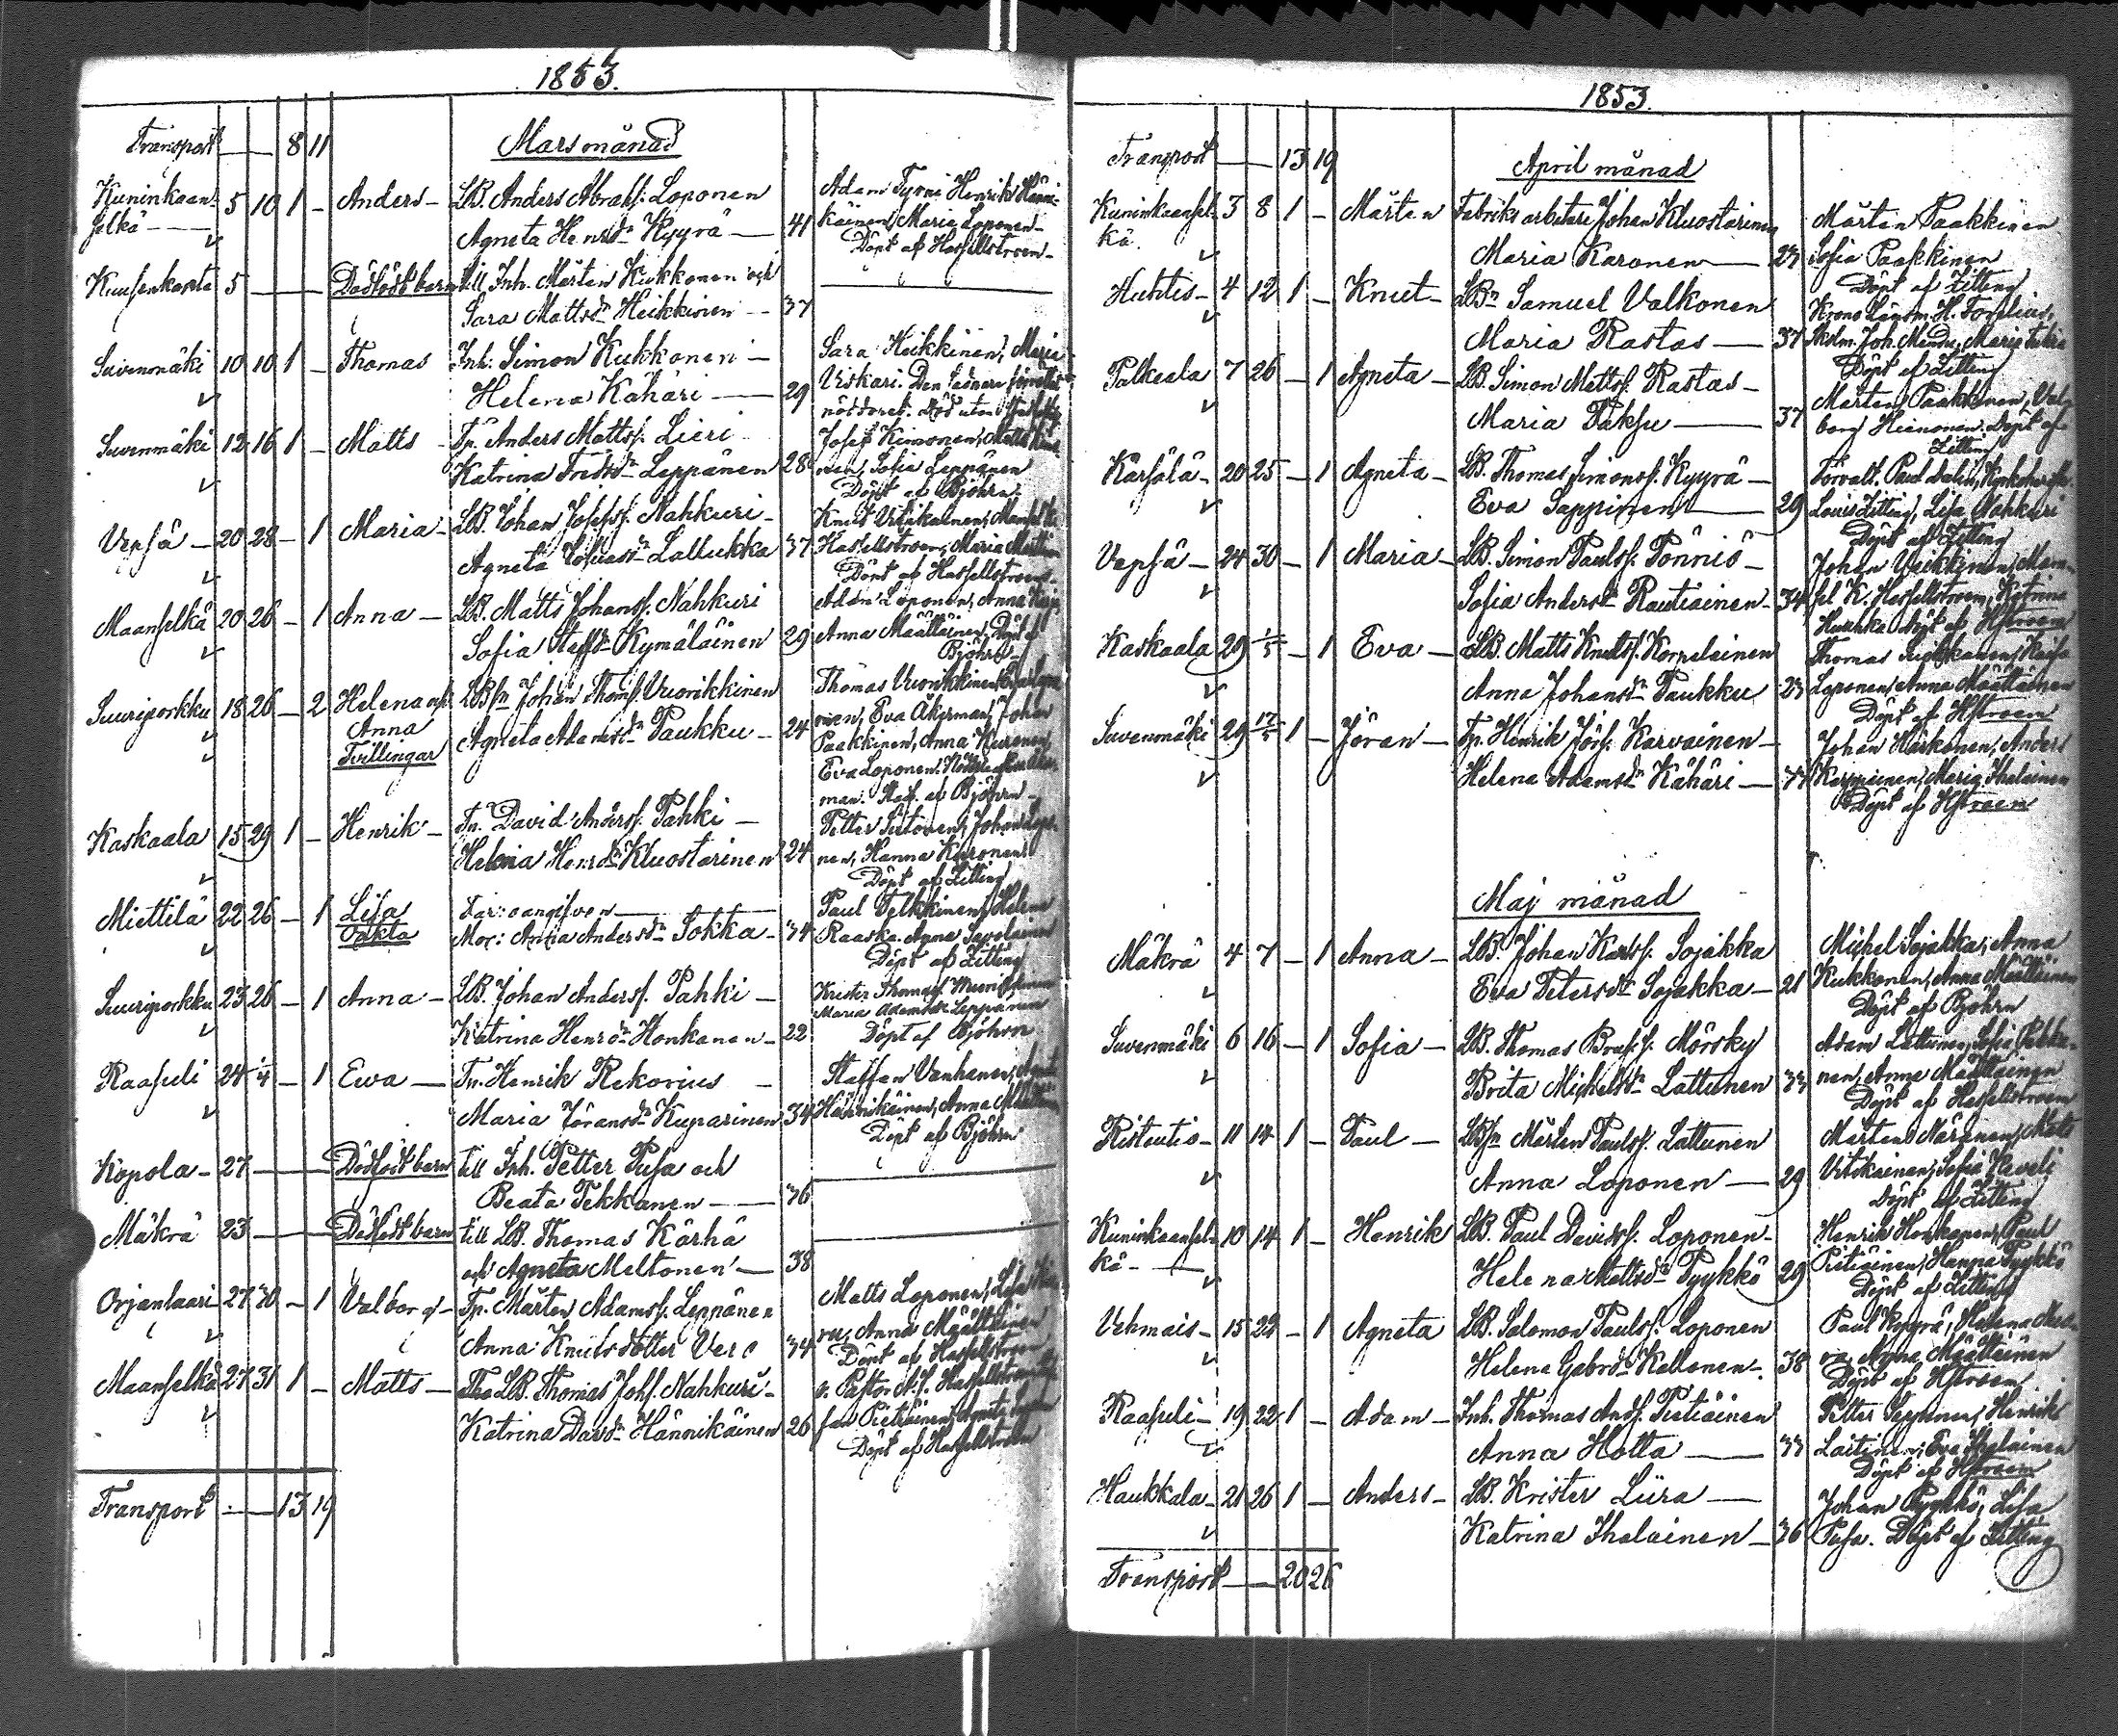 1853.
Transport — — 8 11
Mars månad
Kuninkaan- 5 10 1 – Anders – LB. Anders Abrahs: Loponen
selkä
Agneta Henrsdr Kyyrä — 41
Adam Tyrni Henrik Hänni-
käinen, Maria Loponen –
Döpt af Hassellstroem –
Kuusenkanta 5 — — Dödfödt barn till Inh. Mårten Kukkonen och
Sara Mattsdr Heikkinen – 37
Suvenmäki 10 10 1 – Thomas Inh: Simon Kukkonen –
Helena Kähäri — 29
Sara Heikkinen, Maria
Wiskari. Den sednare förrättat
nöddopet. Död utan
Suvenmäki 12 16 1 – Matts – Tp. Anders Mattss. Lieri
Katrina Fredsdr Leppänen 28
Josef Kimonen, Matts
nen, Sofia Leppänen
Döpt af Björhn
Vepsä – 20 28 – 1 Maria – LB. Johan Josefss. Nahkuri –
Agneta Lallukka 37
Knut Vitikainen, Mamsel K.
Hassellstroem, Maria
Döpt af Hassellstroem –
Maanselkä 20 26 – 1 Anna – LB. Matts Johanss. Nahkuri
Sofia Staffsdr Kymäläinen 29
Adam Loponen, Anna
Anna Määttäinen, Döpt af
Björhn –
Suuriporkku 18 26 – 2 Helena och LBsn Johan Thomss. Vuorikkinen
Anna
Tvillingar
Agneta Adamsdr Paukku – 24
Thomas Vuorikkinen
Eva Åkerman, Johan
Paakkinen, Anna Kuronen
Eva Loponen. Nöddöpt af
man. Stadf. af Björhn –
Kaskaala 15 29 1 – Henrik – Tn. David Anderss. Pahki –
Helena Henrsdr Kluostarinen 24
Petter Siitonen, Johan
nen, Hanna Kuronen
Döpt af Zitting
Miettilä 22 26 – 1 Lisa Far: oangifven —
Oäkta
Mor: Anna Andersdr Sokka – 34
Paul Telkkinen, Helena
Raaska. Anna Savolainen
Döpt af Zitting
Suuriporkku 23 26 – 1 Anna – LB. Johan Anderss. Pahki –
Katrina Henrsdr Honkanen – 22
Krister Thomass.
Maria Adamsdr Leppänen
Döpt af Björhn
Raasuli 24 1/4 – 1 Ewa — Tn. Henrik Rekorius –
Maria Jöransdr Kuparinen 34
Staffan Vanhanen,
Hännikäinen, Anna
Döpt af Björhn
Kopola – 27 — — Dödfödt barn till Inh. Petter Pusa och
Beata Pekkanen — 36
Mäkrä 23 — — Dödfödt barn till LB. Thomas Kärhä
och Agneta Meltonen — 38
Orjansaari 27 30 – 1 Valborg – Tp. Mårten Adamss. Leppänen
Anna Knutsdotter 34
Matts Loponen, Lisa
Anna Määttäinen
Döpt af Hassellstroem
Maanselkä 27 31 1 – Matts – LB. Thomas Johss. Nahkuri –
Katrina Davdsdr Hännikäinen 26
v. Pastor Hassellstroem
fan Pietiäinen, Agneta
Döpt af Hassellstroem
Transport — — 13 19
1853.
Transport — — 13 19
April månad
Kuninkaansel- 3 8 1 – Mårten Fabriks arbetare Johan Kluostarinen
kä.
Maria Karonen — 23
Mårten Paakkinen
Sofia Paakkinen
Döpt af Zitting
Huhtis – 4 12 1 – Knut – LBn Samuel Valkonen
Maria Rastas — 37
Krono Länsm. H. Forselius,
Joh. Maria
Döpt af Zitting
Palkeala 7 26 – 1 Agneta – LB. Simon Mattss. Rastas –
Maria Paksu — 37
Mårten Paakkinen, Val-
borg Heinonen. Döpt af
Zitting
Kärsälä – 20 25 – 1 Agneta – LB. Thomas Simonss. Kyyrä –
Eva Sappinen — 29
Förvalt. Paul
Louis Zitting, Lisa Nahkuri
Döpt af Zitting
Vepsä – 24 30 – 1 Maria – LB. Simon Paulss. Tönniö –
Sofia Andersdr Rautiainen – 34
Johan Veikkinen, Mam-
sel K. Hassellstroem, Katrina
Huuhka Döpt af Hstroem
Kaskaala 29 1/5 – 1 Eva – LB. Matts Knutss. Korpelainen
Anna Johansdr Paukku 23
Thomas Suikkanen, Kaisa
Loponen, Anna Määttäinen
Döpt af Hstroem
Suvenmäki 29 17/5 1 – Jöran – Tp. Henrik Jörs. Karvainen –
Helena Adamsdr Kähäri –
Johan Härkönen, Anders
Karvainen, Maria Ihalainen
Döpt af Hstroem
Maj månad
Mäkrä 4 7 – 1 Anna – LB. Johan Sojakka
Eva Petersdr Sojakka – 21
Michel Sojakka, Anna
Kukkonen, Anna Määttäinen
Döpt af Björhn
Suvenmäki 6 16 – 1 Sofia – LB. Thomas Mörsky
Brita Michelsdr Lattunen 33
Adam Lattunen, Sofia
nen, Anna Määttäinen
Döpt af Hassellstroem
Risteutio – 11 14 1 – Paul – LBsn Mårten Paulss. Lattunen
Anna Loponen — 29
Mårten Märänen, Mats
Vitikainen, Sofia Keveli
Döpt af Zitting
Kuninkaansel- 10 14 1 – Henrik LB. Paul Davidss. Loponen –
kä –
Helena Mattsdr Pyykkö 29
Henrik Honkanen, Paul
Pietiäinen, Hanna Pyykkö
Döpt af Zitting
Vehmais – 15 22 – 1 Agneta LB. Salomon Paulss. Loponen
Helena Gabrsdr Kellonen – 38
Paul Kyyrä, Helena
Anna Määttäinen
Döpt af Hstroem
Raasuli – 19 22 1 – Adam – Inh. Thomas Ands. Pietiäinen
Anna Hotta — 33
Petter Seppinen, Henrik
Laitinen, Eva Ihalainen
Döpt af Hstroem
Haukkala – 21 26 1 – Anders – LB. Krister Liira —
Katrina Ihalainen – 36
Johan Pyykkö, Lisa
Pusa. Döpt af Zitting
Transport — — 20 26